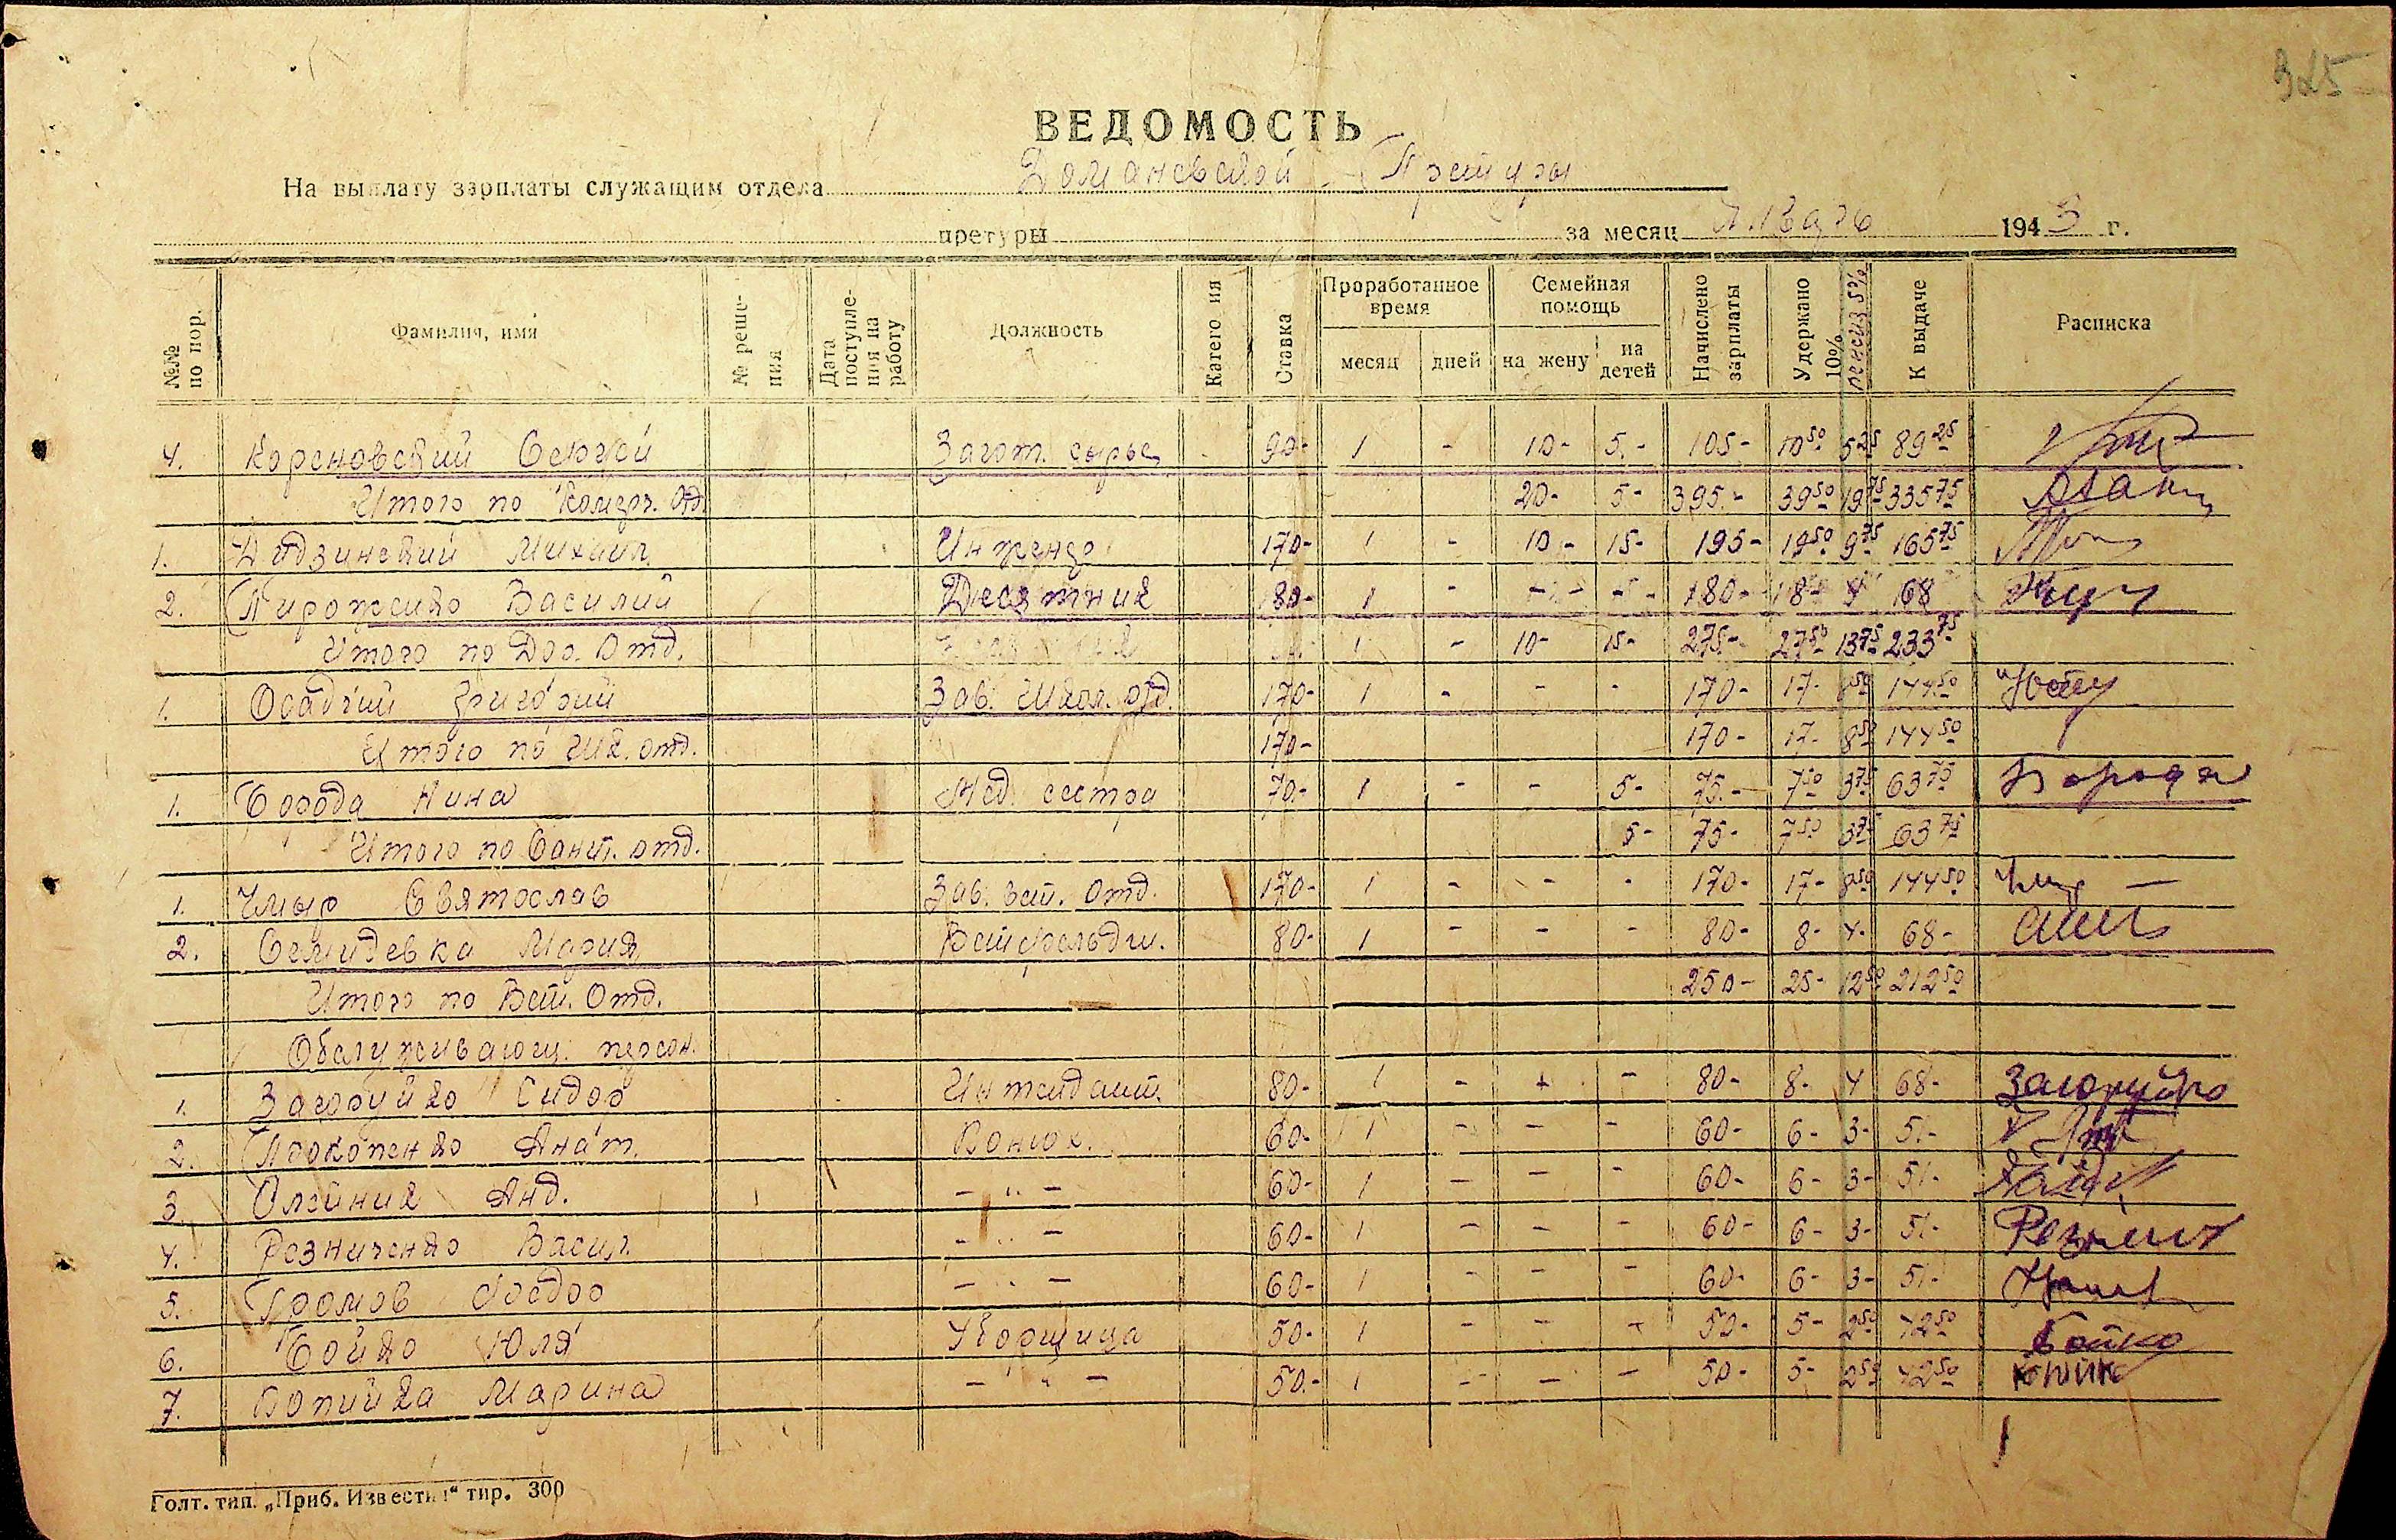 325
ВЕДОМОСТЬ
На выплату зарплаты служащим отдела Домановской Претуры
претуры за месяц Январь 1943 г.
№№ по пор. Фамилия, имя № решения Дата поступления на работу Должность Катего ия Ставка Проработанное время месяц дней Семейная помощь на жену на детей Начислено зарплаты Удержано 10% пенсия 5% К выдаче Расписка
4. Кореновский Сергей Загот. сырья 90- 1 - 10- 5.- 105- 10 50 5 25 89 25
Итого по Комерч. Отд. 20- 5- 395.- 39 50 19 75 335 75
1. Михаил Инженер 170- 1 - 10- 15- 195- 19 50 9 75 165 75
2. Пирожко Василий Десятник 80- 1 - - - 80- 8- 4 68
Итого по Дор. Отд. 1 - 10- 15- 275.- 27 50 13 75 233 75
1. Осадчий Григорий Зав. Школ. отд. 170- 1 - - - 170- 17- 8 50 144 50
Итого по Шк. отд. 170- 170- 17- 8 50 144 50
1. Борода Нина Мед. сестра 70.- 1 - - 5- 75.- 7 50 3 75 63 75 Борода
Итого по Санит. отд. 5- 75- 7 50 3 75 63 75
1. Чмыр Святослав Зав. Вет. Отд. 170- 1 - - - 170- 17- 8 50 144 50
2. Семидевка Мария Ветфельдш. 80- 1 - - - 80- 8- 4- 68-
Итого по Вет. Отд. 250- 25- 12 50 212 50
Обслуживающ. персон.
1. Загоруйко Сидор Интендант. 80- 1 - - - 80- 8- 4 68- Загоруйко
2. Прокопенко Анат. Конюх. 60- 1 - - - 60- 6- 3- 51-
3. Олейник Анд. - " - 60- 1 - - - 60- 6- 3- 51-
4. Резниченко Васил. - " - 60- 1 - - - 60- 6- 3- 51-
5. Громов Федор - " - 60- 1 - - - 60- 6- 3- 51-
6. Бойко Юля Уборщица 50- 1 - - - 50- 5- 2 50 42 50 Бойко
7. Копийка Марина - " - 50.- 1 - - - 50- 5- 2 50 42 50
Голт. тип. „Приб. Известия“ тир. 300